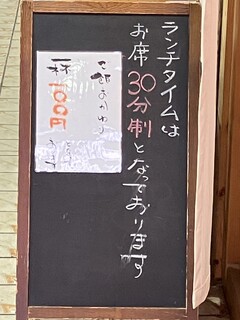 ランチタイムは
お席30分制となっております
おかわり
一杯100円